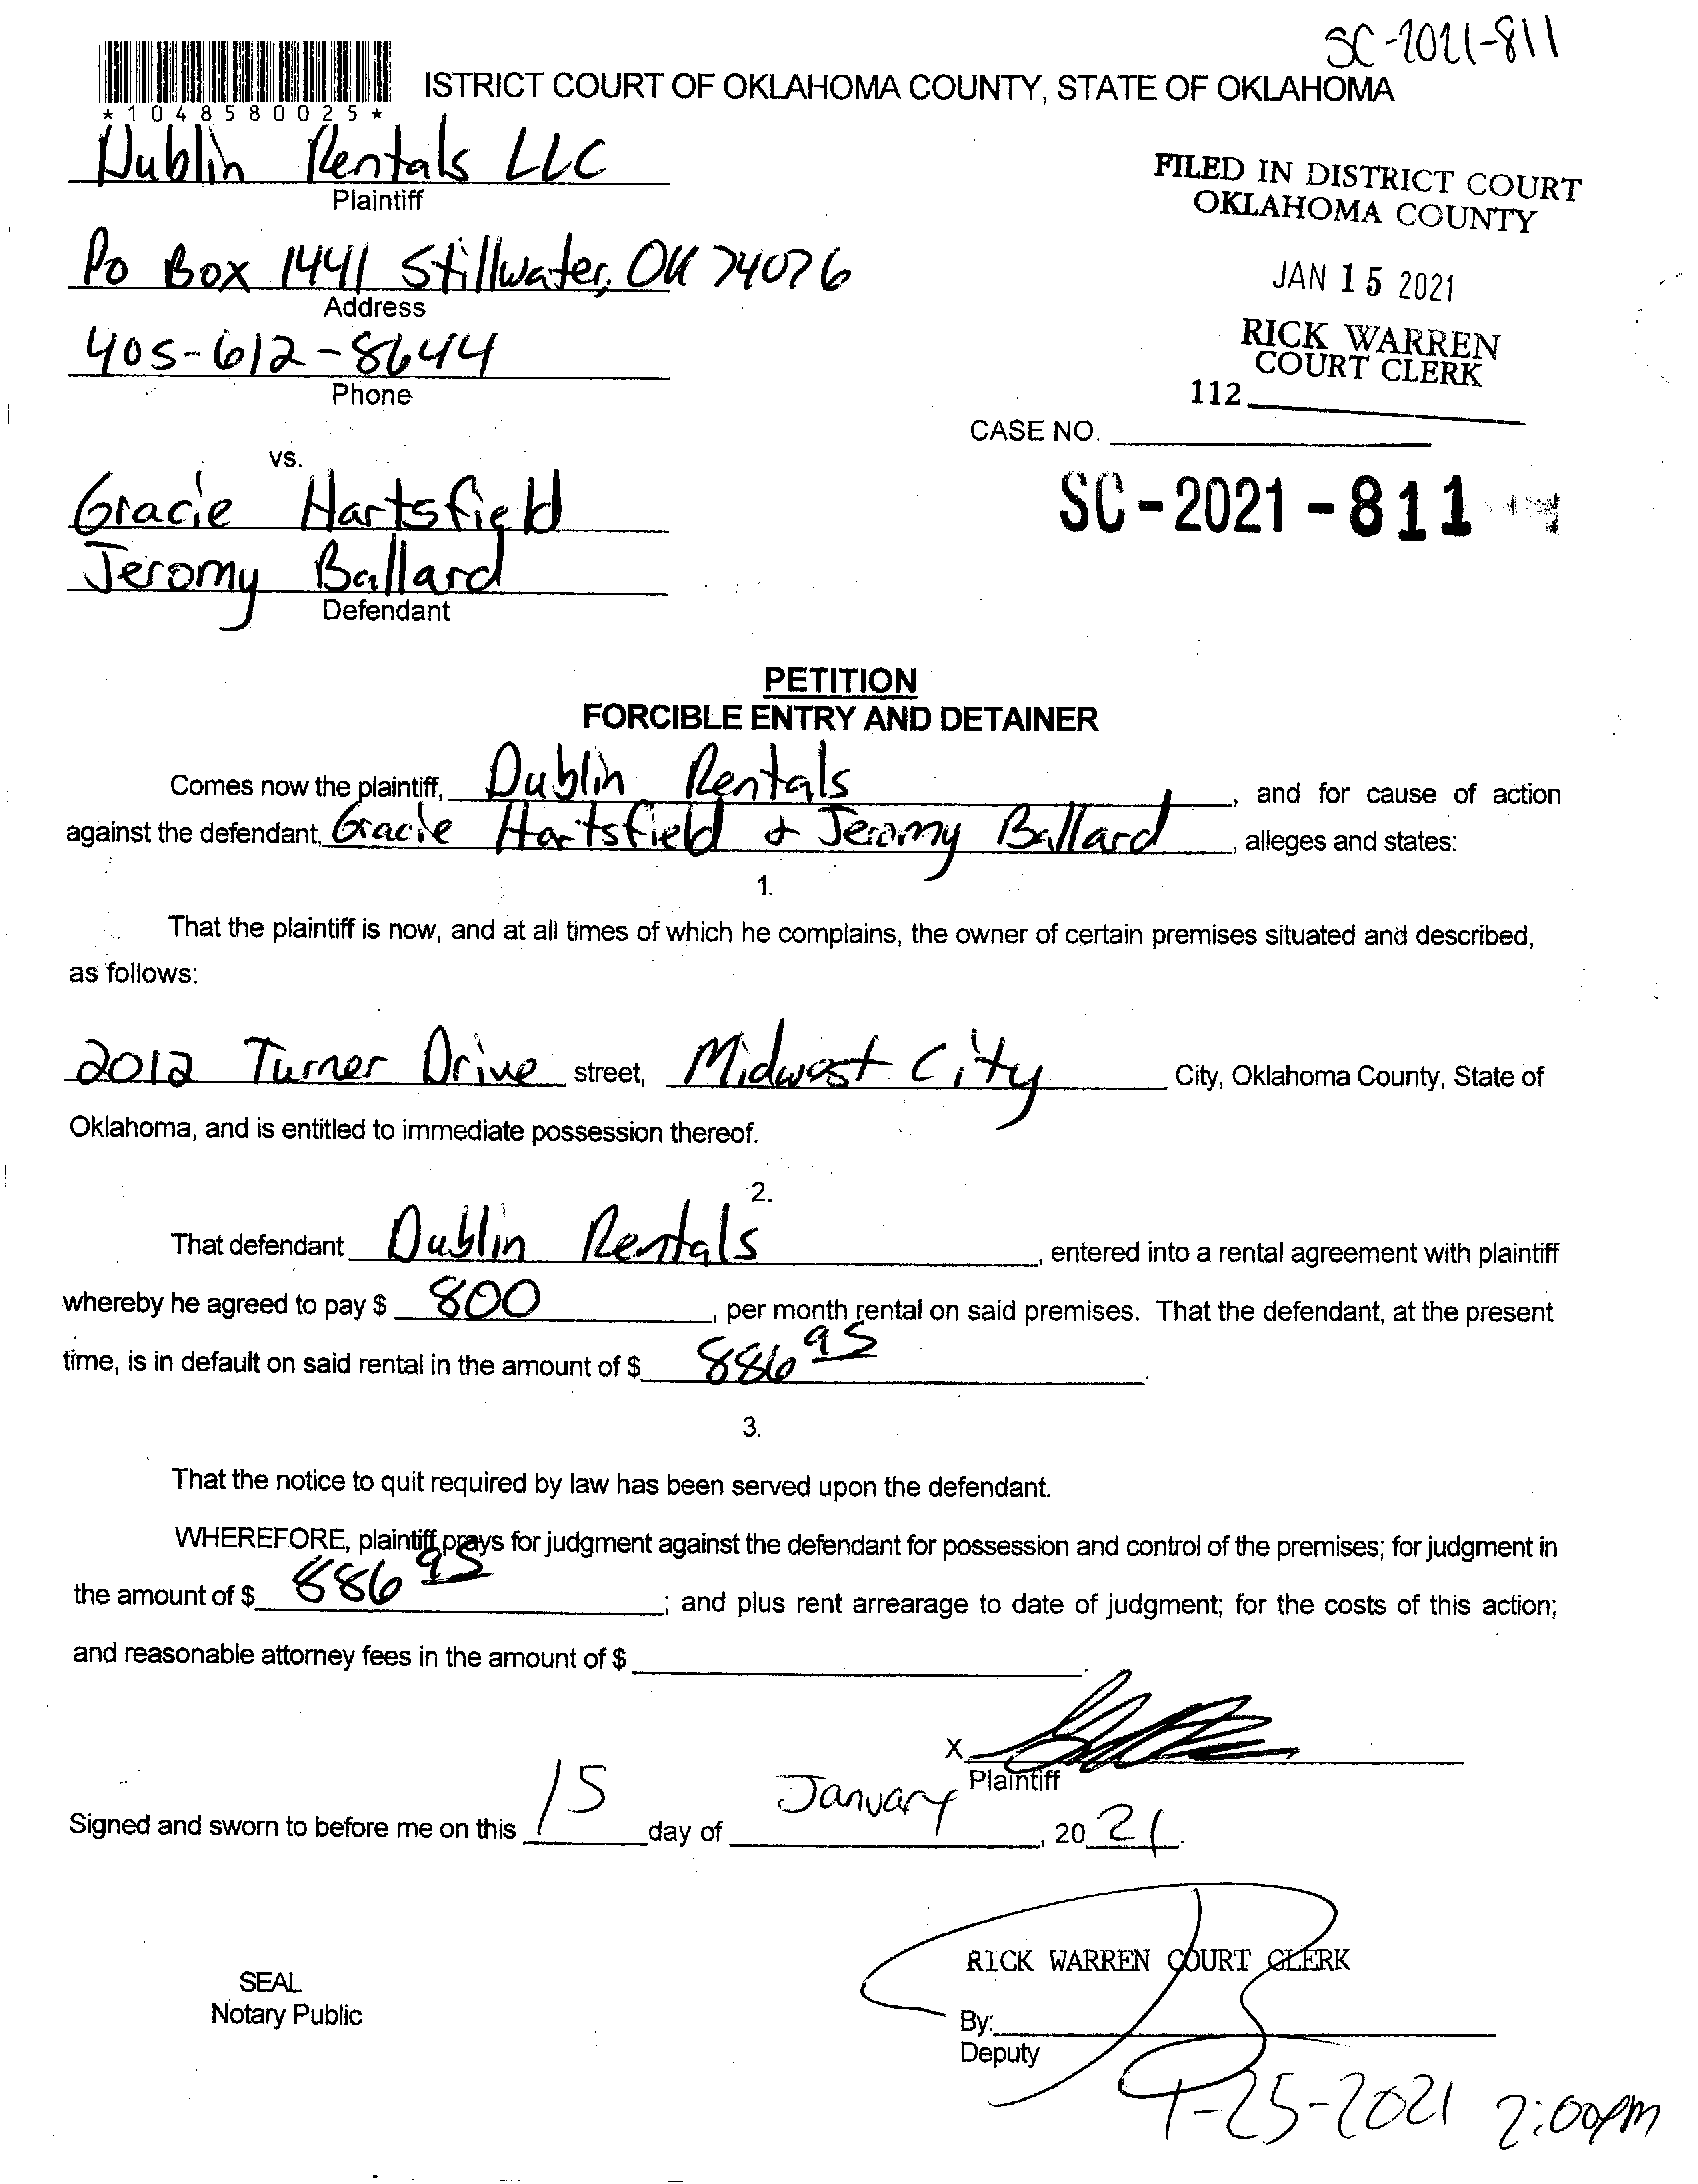 SC-2021-811
*1048580025*
ISTRICT COURT OF OKLAHOMA COUNTY, STATE OF OKLAHOMA
Dublin Rentals LLC
Plaintiff
FILED IN DISTRICT COURT
OKLAHOMA COUNTY
Po Box 1441 Stillwater, OK 74076
Address
JAN 15 2021
405-612-8644
Phone
RICK WARREN
COURT CLERK
112
CASE NO.
vs.
SC-2021-811
Gracie Hartsfield
Jeromy Ballard
Defendant
PETITION
FORCIBLE ENTRY AND DETAINER
Comes now the plaintiff, Dublin Rentals, and for cause of action
against the defendant, Gracie Hartsfield & Jeromy Ballard, alleges and states:
1.
That the plaintiff is now, and at all times of which he complains, the owner of certain premises situated and described,
as follows:
2012 Turner Drive street, Midwest City City, Oklahoma County, State of
Oklahoma, and is entitled to immediate possession thereof.
2.
That defendant Dublin Rentals, entered into a rental agreement with plaintiff
whereby he agreed to pay $ 800, per month rental on said premises. That the defendant, at the present
time, is in default on said rental in the amount of $ 886 95.
3.
That the notice to quit required by law has been served upon the defendant.
WHEREFORE, plaintiff prays for judgment against the defendant for possession and control of the premises; for judgment in
the amount of $ 886 95; and plus rent arrearage to date of judgment; for the costs of this action;
and reasonable attorney fees in the amount of $
X
Plaintiff
Signed and sworn to before me on this 15 day of January, 2021.
RICK WARREN COURT CLERK
SEAL
Notary Public
By:
Deputy
1-25-2021 2:00pm